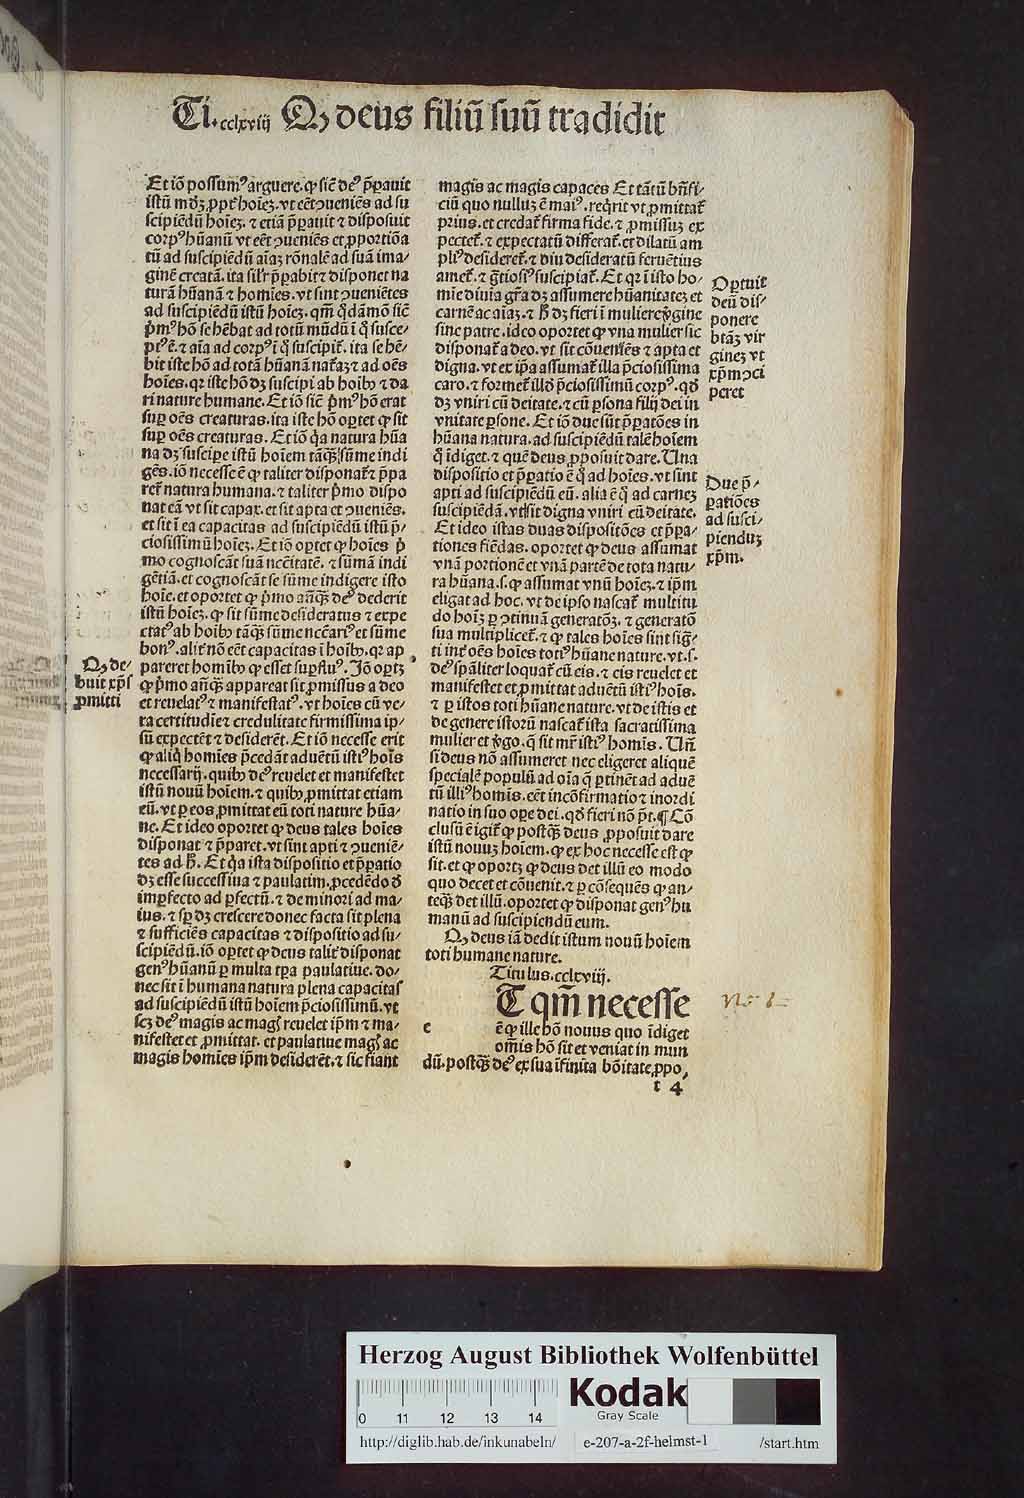 Ti. cclxviij Qꝫ deus filiū suū tradidit
Et iō possumꝰ arguere. ꝙ sic̄ deꝰ p̄parauit
istū mūdꝫ ꝓpt̄ hoīeꝫ. vt eēt ꝯueniēs ad su
scipiēdū hoīeꝫ. ⁊ etiā p̄parauit ⁊ disposuit
corpꝰ hūanū vt eēt ꝯueniēs et ꝓportiōa
tū ad suscipiēdū aīaꝫ rōnalē ad suā ima⸗
ginē creatā. ita sil̄r p̄parabit ⁊ disponet na
turā hūanā ⁊ homīes. vt sint ꝯueniētes
ad suscipiēdū istū hoīeꝫ. qm̄ q̄dāmō sic̄
p̄mꝰ hō se hēbat ad totū mūdū ī q̄ susce⸗
ptꝰ ē. ⁊ aīa ad corpꝰ ī q̄ suscipit̄. ita se hē⸗
bit iste hō ad totā hūanā nat̄aꝫ ⁊ ad oēs
hoīes. qꝛ iste hō dꝫ suscipi ab hoībꝰ ⁊ da
ri nature humane. Et iō sic̄ p̄mꝰ hō erat
suꝑ oēs creaturas. ita iste hō oꝑtet ꝙ sit
suꝑ oēs creaturas. Et iō q̄a natura hūa
na dꝫ suscipe istū hoīem tāqꝫ sūme indi
gēs. iō necesse ē ꝙ taliter disponat̄ ⁊ p̄pa
ret̄ natura humana. ⁊ taliter p̄mo dispo
nat eā vt sit capax. et sit apta et ꝯueniēs.
et sit ī ea capacitas ad suscipiēdū istū p̄⸗
ciosissimū hoīeꝫ. Et iō oꝑtet ꝙ hoīes p̄
mo cognoscāt suā nēcitatē. ⁊ sūmā indi
gētiā. et cognoscāt se sūme indigere isto
hoīe. et oportet ꝙ p̄mo an̄qꝫ deꝰ dederit
istū hoīeꝫ. ꝙ sit sūme desideratus ⁊ expe
ctatꝰ ab hoībꝰ tāqꝫ sūme necēariꝰ et sūme
bonꝰ. alit̄ nō eēt capacitas ī hoībꝰ. qꝛ ap
pareret homībꝰ ꝙ esset suꝑfluꝰ. Iō oꝑtꝫ
ꝙ p̄mo an̄qꝫ appareat sit ꝓmissus a deo
et reuelatꝰ ⁊ manifestatꝰ. vt hoīes cū ve⸗
ra certitudīe ⁊ credulitate firmissima ip⸗
sū expectēt ⁊ desiderēt. Et iō necesse erit
ꝙ aliq̄ homīes p̄cedāt aduētū istiꝰ hoīs
necessarij. quibꝰ deꝰ reuelet et manifestet
istū nouū hoīem. ⁊ quibꝰ ꝓmittat etiam
eū. vt ꝑ eos ꝓmittat eū toti nature hūa⸗
ne. Et ideo oportet ꝙ deus tales hoīes
disponat ⁊ p̄paret. vt sint apti ⁊ ꝯueniē⸗
tes ad h̄. Et q̄a ista dispositio et p̄paratio
dꝫ esse successiua ⁊ paulatim. ꝓcedēdo d̄
imꝑfecto ad ꝑfectū. ⁊ de minori ad ma⸗
ius. ⁊ sꝑ dꝫ crescere donec facta sit plena
⁊ sufficiēs capacitas ⁊ dispositio ad su⸗
scipiēdū. iō oꝑtet ꝙ deus talit̄ disponat
genꝰ hūanū ꝑ multa tꝑa paulatiue. do⸗
nec sit ī humana natura plena capacitas
ad suscipiēdū istū hoīem p̄ciosissimū. vt
scꝫ deꝰ magis ac magꝭ reuelet ip̄m ⁊ ma⸗
nifestet et ꝓmittat. et paulatiue magꝭ ac
magis homīes ip̄m desiderēt. ⁊ sic fiant
Qꝫ de⸗
buit xp̄s
ꝓmitti
magis ac magis capaces Et tātū bn̄fi⸗
ciū quo nulluꝫ ē maiꝰ. reqͥrit vt ꝓmittat̄
prius. et credat̄ firma fide. ⁊ ꝓmissuꝫ ex
pectet̄. ⁊ expectatū differat̄. et dilatū am
pliꝰ desideret̄. ⁊ diu desideratū feruētius
amet̄. ⁊ ḡtiosiꝰ suscipiat̄. Et qꝛ ī isto ho⸗
mīe diuīa gr̄a dꝫ assumere hūanitateꝫ et
carnē ac aīaꝫ. ⁊ h̄ dꝫ fieri ī muliere v̄gine
sine patre. ideo oportet ꝙ vna mulier sic
disponat̄ a deo. vt sit cōueniēs ⁊ apta et
digna. vt ex ip̄a assumat̄ illa p̄ciosissima
caro. ⁊ formet̄ illd̄ p̄ciosissimū corpꝰ. qd̄
dꝫ vniri cū deitate. ⁊ cū ꝑsona filij dei in
vnitate ꝑsone. Et iō due sūt p̄paratōes in
hūana natura. ad suscipiēdū talē hoīem
q̄ īdiget. ⁊ quē deus ꝓposuit dare. Una
dispositio et p̄paratio ē q̄ ad hoīes. vt sint
apti ad suscipiēdū eū. alia ē q̄ ad carneꝫ
suscipiēdā. vt sit digna vniri cū deitate.
Et ideo istas duas dispositōes et p̄para⸗
tiones fiēdas. oportet ꝙ deus assumat
vnā portionē et vnā partē de tota natu⸗
ra hūana. s. ꝙ assumat vnū hoīeꝫ. ⁊ ip̄m
eligat ad hoc. vt de ipso nascat̄ multitu
do hoīꝫ ꝑ ꝯtinuā generatōꝫ. ⁊ generatō
sua multiplicet̄. ⁊ ꝙ tales hoīes sint sig̅⸗
ti int̄ oēs hoīes totiꝰ hūane nature. vt. s.
deꝰ sp̄aliter loquat̄ cū eis. ⁊ eis reuelet et
manifestet et ꝓmittat aduētū istiꝰ hoīs.
⁊ ꝑ istos toti hūane nature. vt de istis et
de genere istorū nascat̄ ista sacratissima
mulier et v̄go. q̄ sit mr̄ istiꝰ homīs. Un̄
si deus nō assumeret nec eligeret aliquē
specialē populū ad oīa q̄ ꝑtinēt ad aduē
tū illiꝰ homīs. eēt incōfirmatio ⁊ inordi
natio in suo oꝑe dei. qd̄ fieri nō pt̄. ¶ Cō
clusū ē igit̄ ꝙ postqꝫ deus ꝓposuit dare
istū nouuꝫ hoīem. ꝙ ex hoc necesse est ꝙ
sit. et ꝙ oportꝫ ꝙ deus det illū eo modo
quo decet et cōuenit. ⁊ ꝑ cōsequēs ꝙ an⸗
teqꝫ det illū. oportet ꝙ disponat genꝰ hu
manū ad suscipiendū eum.
Qꝫ deus iā dedit istum nouū hoīem
toti humane nature.
Titulus. cclxviij.
e
T qm̄ necesse
ē ꝙ ille hō nouus quo īdiget
om̄is hō sit et veniat in mun
dū. postqꝫ deꝰ ex sua īfinita bōitate ꝓpo⸗
t 4
Oꝑtuit
deū dis⸗
ponere
btāꝫ vir
gineꝫ vt
xp̄m ꝯci
peret
Due p̄⸗
paratiōes
ad susci⸗
pienduꝫ
xp̄m.
Herzog August Bibliothek Wolfenbüttel
Kodak
Gray Scale
0 11 12 13 14
http://diglib.hab.de/inkunabeln/ e-207-a-2f-helmst-1 /start.htm